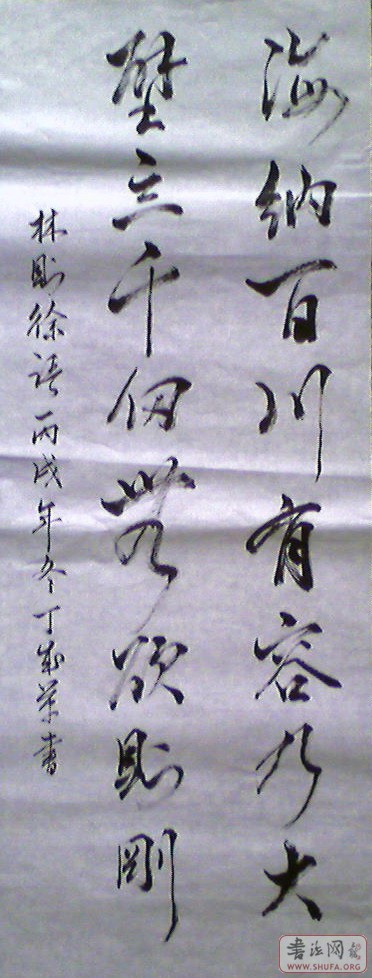 海纳百川有容乃大
壁立千仞无欲则刚
林则徐语丙戌年冬丁成第书
书法网
WWW.SHUFA.ORG